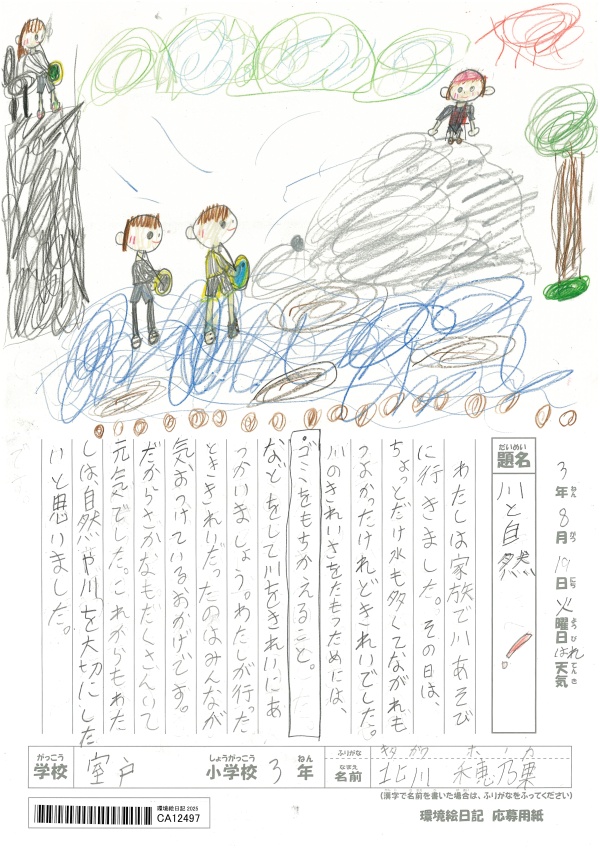 3年8月19日火曜日はれ天気
ねん がつ にち ようび てんき
だいめい
題名
川と自然
わたしは家族で川あそび
に行きました。その日は、
ちょっとだけ水も多くてながれも
つよかったけれどきれいでした。
川のきれいさをたもつためには、
・ゴミをもちかえること。
などをして川をきれいにあ
つかいましょう。わたしが行った
ときききれいだったのはみんなが
気おつけているおかげです。
だからさかなもだくさんいて
元気でした。これからもわた
しは自然や川を大切にした
いと思いました。
がっこう しょうがっこう ねん
学校 室戸 小学校 3年
ふりがな キタガワ ホノカ
なまえ
名前 北川 穂恵乃果
(漢字で名前を書いた場合は、ふりがなをふってください)
環境絵日記 2025
CA12497
環境絵日記 応募用紙